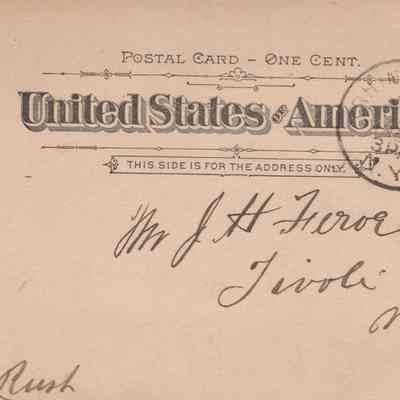 POSTAL CARD - ONE CENT.
United States of Ameri
THIS SIDE IS FOR THE ADDRESS ONLY.
Mr J H Feroe
Tivoli
Rush